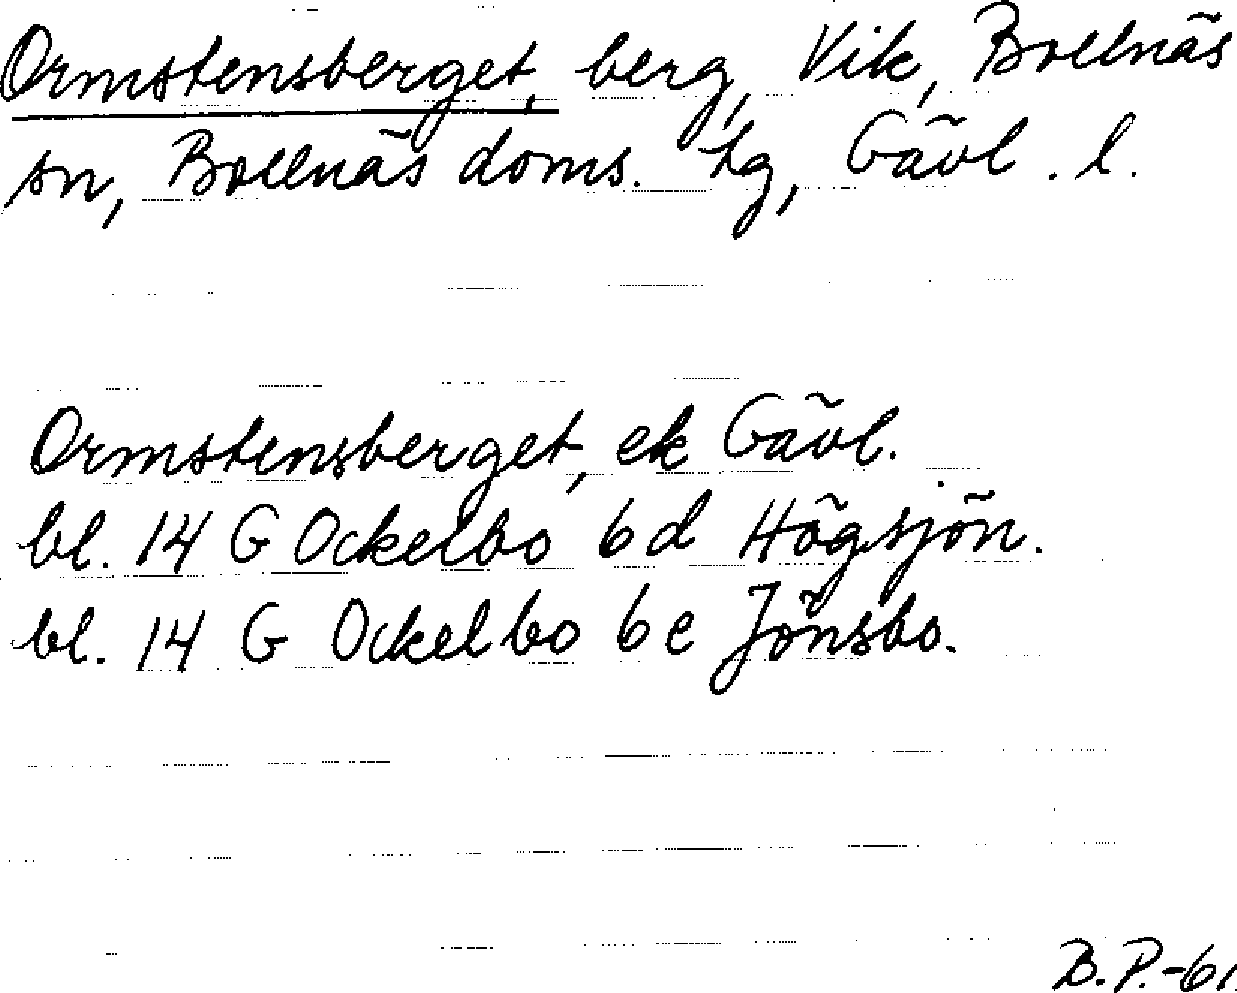 Ormstensberget, berg, Vik, Bollnäs
sn, Bollnäs doms. lg, Gävl. l.
Ormstensberget, ek Gävl.
bl. 14 G Ockelbo 6d Högsjön.
bl. 14 G Ockelbo 6e Jönsbo.
B.P.-61.